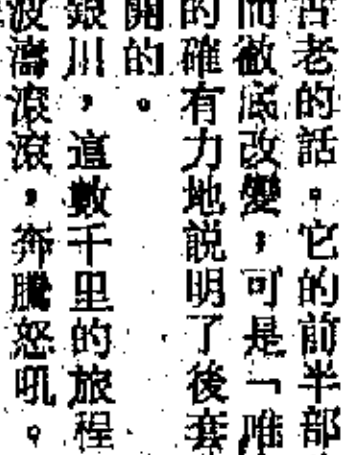 古老的話。它的前半部
而徹底改變,可是「唯
的確有力地說明了後套
開的。
銀川,這數千里的旅程
波濤滾滾,奔騰怒吼。